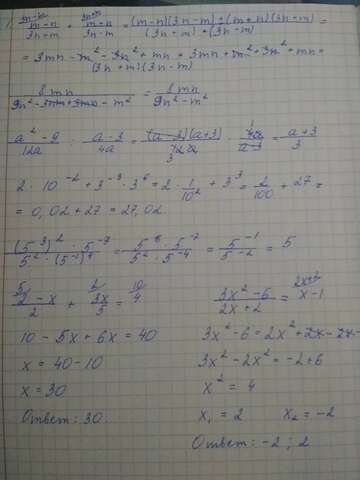 1. (m-n)/(3n+m) + (m+n)/(3n-m) = ((m-n)(3n-m) + (m+n)(3n+m))/((3n+m)*(3n-m)) =
= (3mn - m² - 3n² + mn + 3mn + m² + 3n² + mn)/((3n+m)(3n-m)) =
8mn/(9n² - 3mn + 3mn - m²) = 8mn/(9n² - m²)
(a² - 9)/12a : (a-3)/4a = (a-3)(a+3)/12a · 4a/(a-3) = (a+3)/3
2 · 10⁻² + 3⁻³ · 3⁶ = 2 · 1/10² + 3³ = 2/100 + 27 =
= 0,02 + 27 = 27,02.
((5³)² · 5⁻⁷)/(5⁻² · (5⁻¹)⁴) = (5⁶ · 5⁻⁷)/(5² · 5⁻⁴) = 5⁻¹/5⁻² = 5
(2-x)/2 + 3x/5 = 4
10 - 5x + 6x = 40
x = 40 - 10
x = 30
Ответ: 30.
(3x² - 6)/(2x + 2) = x - 1
3x² - 6 = 2x² + 2x - 2x -
3x² - 2x² = -2 + 6
x² = 4
x₁ = 2 x₂ = -2
Ответ: -2; 2